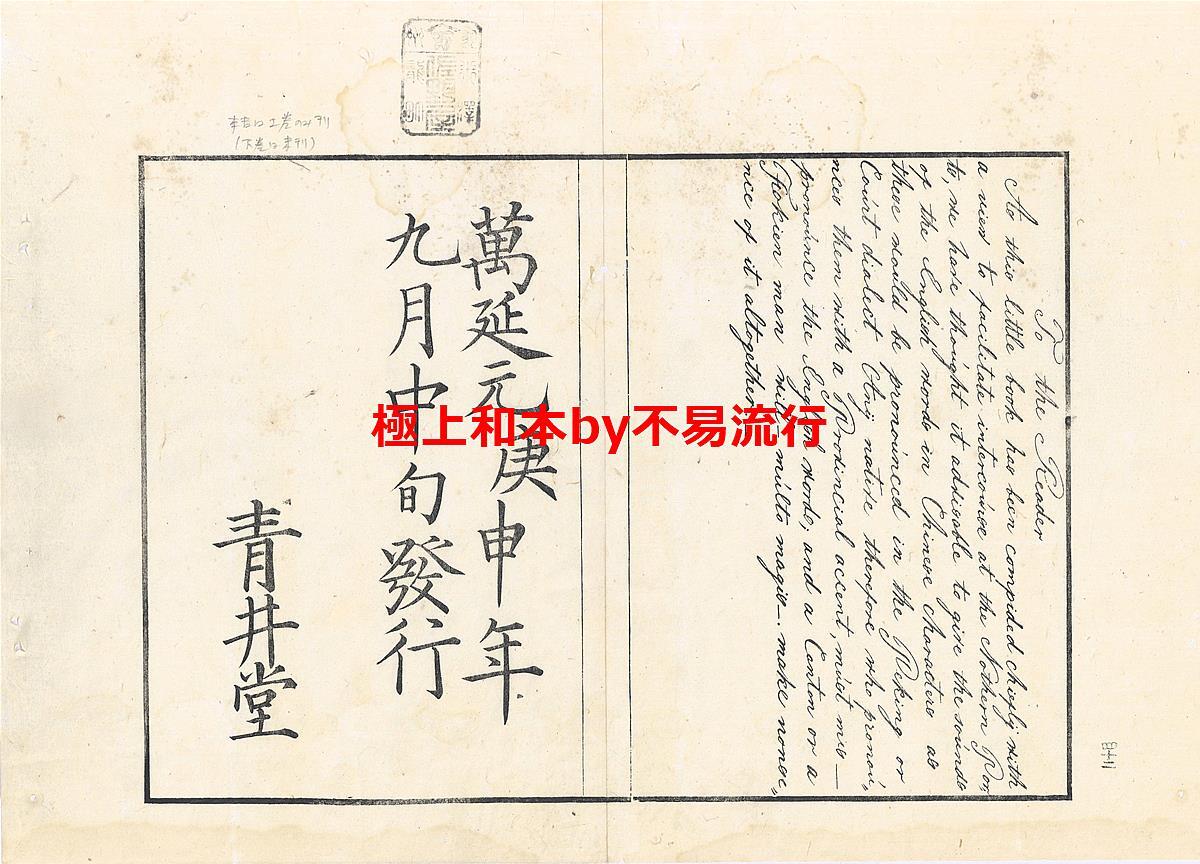 To the Reader
As this little book has been compiled chiefly with
a view to facilitate intercourse at the Nothern Por
ts, we hade thought it addisable to give the sounds
of the English words in Chinese characters as
these would be pronounced in the Peking or
Court dialect Any natise therefore who pronou,
nces them with a Prodincial accent, must mis—
pronounce the English words, and a Canton or a
Fokien man will—multo magis—make nonse,,
nce of it altogether
萬延元庚申年
九月中旬發行
青井堂
本書は上巻のみ刊
(下巻は未刊)
極上和本by不易流行